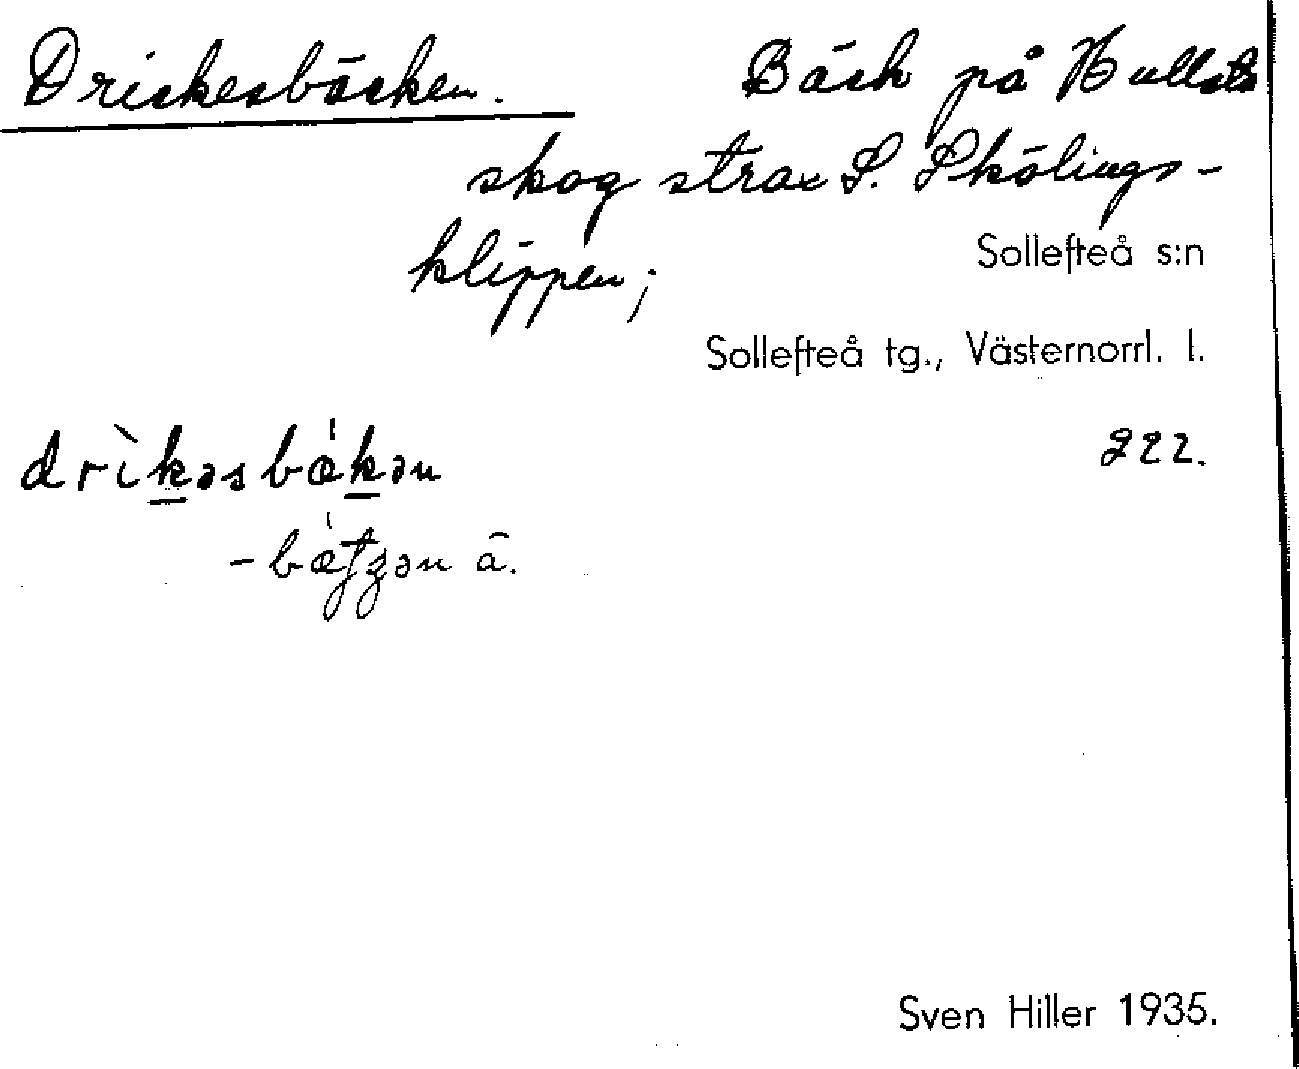 Drickesbäcken. Bäck på Hullsta
skog strax S. Skölings-
klippen;
Sollefteå s:n
Sollefteå tg., Västernorrl. l.
drìkəsbǽkən 222.
-bǽtʒən ä.
Sven Hiller 1935.